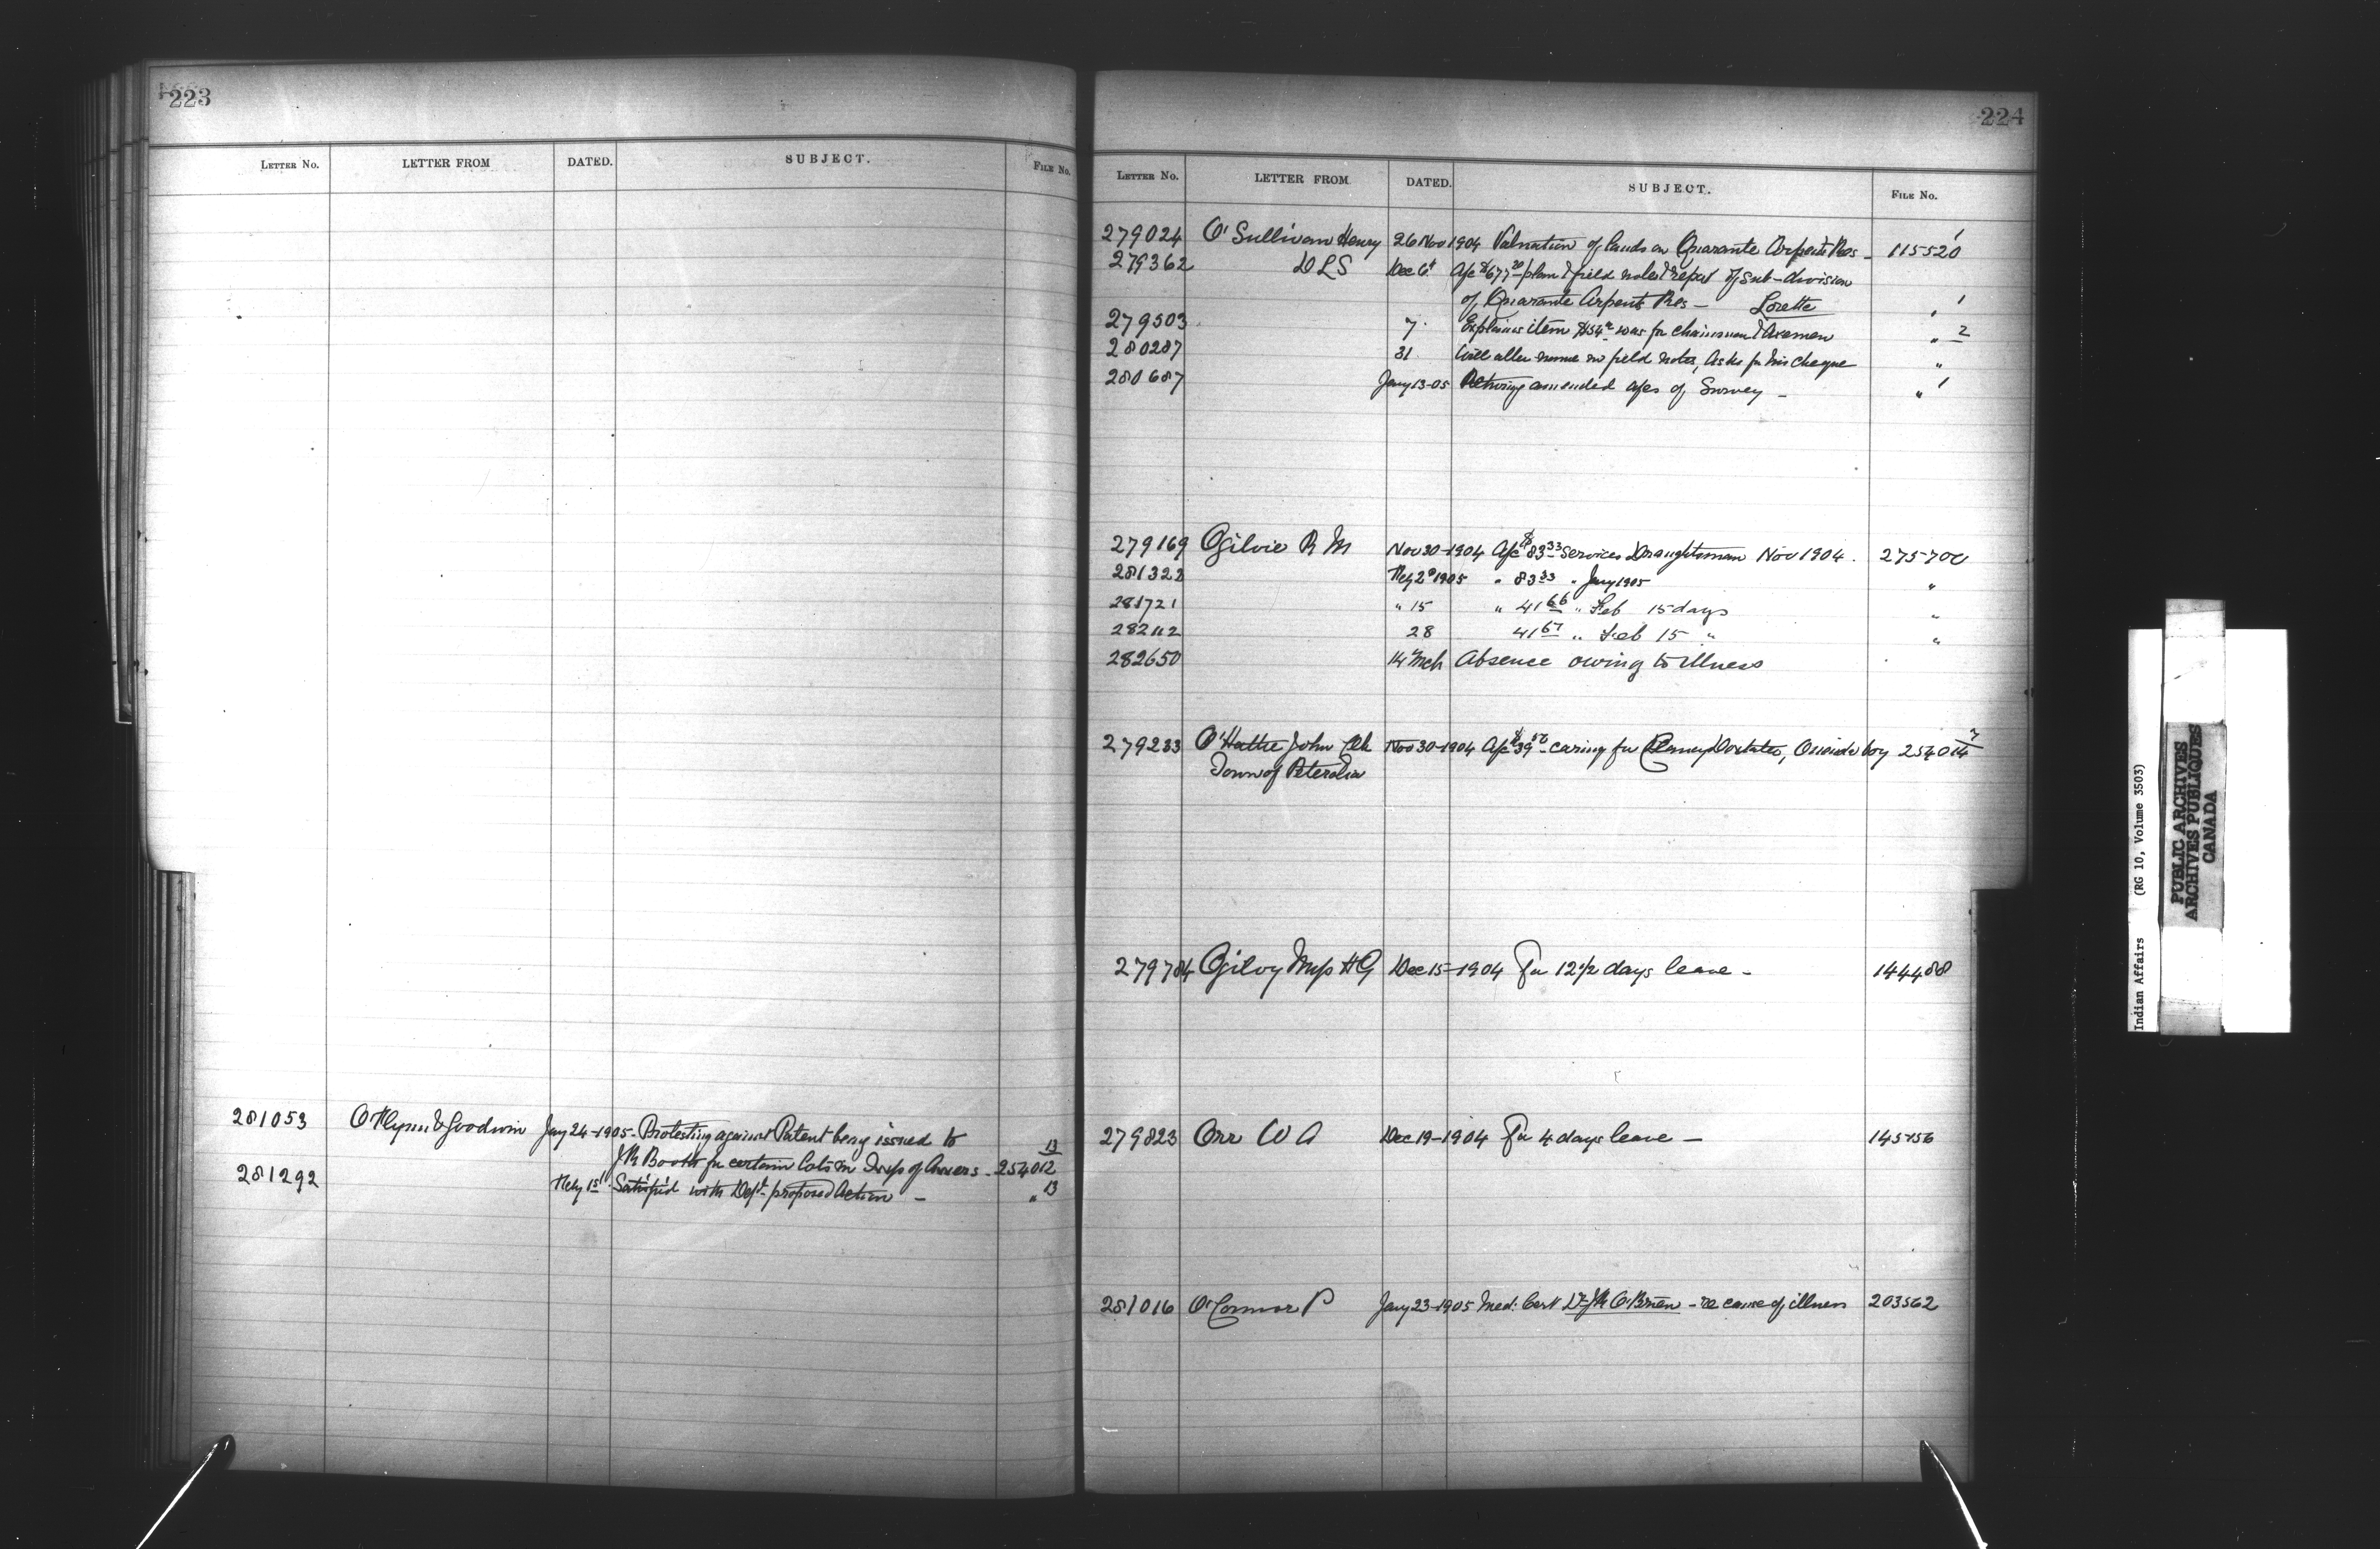 223
LETTER NO. LETTER FROM DATED. SUBJECT. FILE NO.
281053 O'Flynn & Goodwin Jany 24-1905- Protesting against Patent being issued to
J R Booth for certain lots in Twp of Anvers - 254012 13
281292 Feby 1st Satisfied with Dept proposed Action - " 13
224
LETTER NO. LETTER FROM DATED. SUBJECT. FILE NO.
279024 O'Sullivan Henry 26 Nov 1904 Valuation of lands on Quarante Arpents Res - 115520 1
279362 DLS Dec 6t A/c $677 20 plan & field notes & report of sub-division
of Quarante Arpents Res - Lorette " 1
279503 7 Explains item $54 was for chainmen & Axemen " 2
280287 31 Will alter name in field notes, Asks for his cheque "
280687 Jany 13-05 Returng amended a/cs of Survey - " 1
279169 Ogilvie R M Nov 30-1904 A/c $83 33 Services Draughtsman Nov 1904. 275700
281322 Feby 2d 1905 " 83 33 " Jany 1905 "
281721 " 15 " 41 66 " Feb 15 days "
282112 28 41 67 " Feb 15 " "
282650 14 Mch Absence owing to illness
279233 O' John Clk Nov 30-1904 A/c $39 50 - caring for Doxtater, Oneida boy 254014
Town of Petrolia
279784 Ogilvy Miss H G Dec 15-1904 For 12 1/2 days leave - 144488
279823 Orr W A Dec 19-1904 For 4 days leave - 145456
281016 O'Connor P Jany 23-1905 Med: Cert Dr J R O'Brien - re cause of illness 203562
Indian Affairs (RG 10, Volume 3503)
PUBLIC ARCHIVES
ARCHIVES PUBLIQUES
CANADA